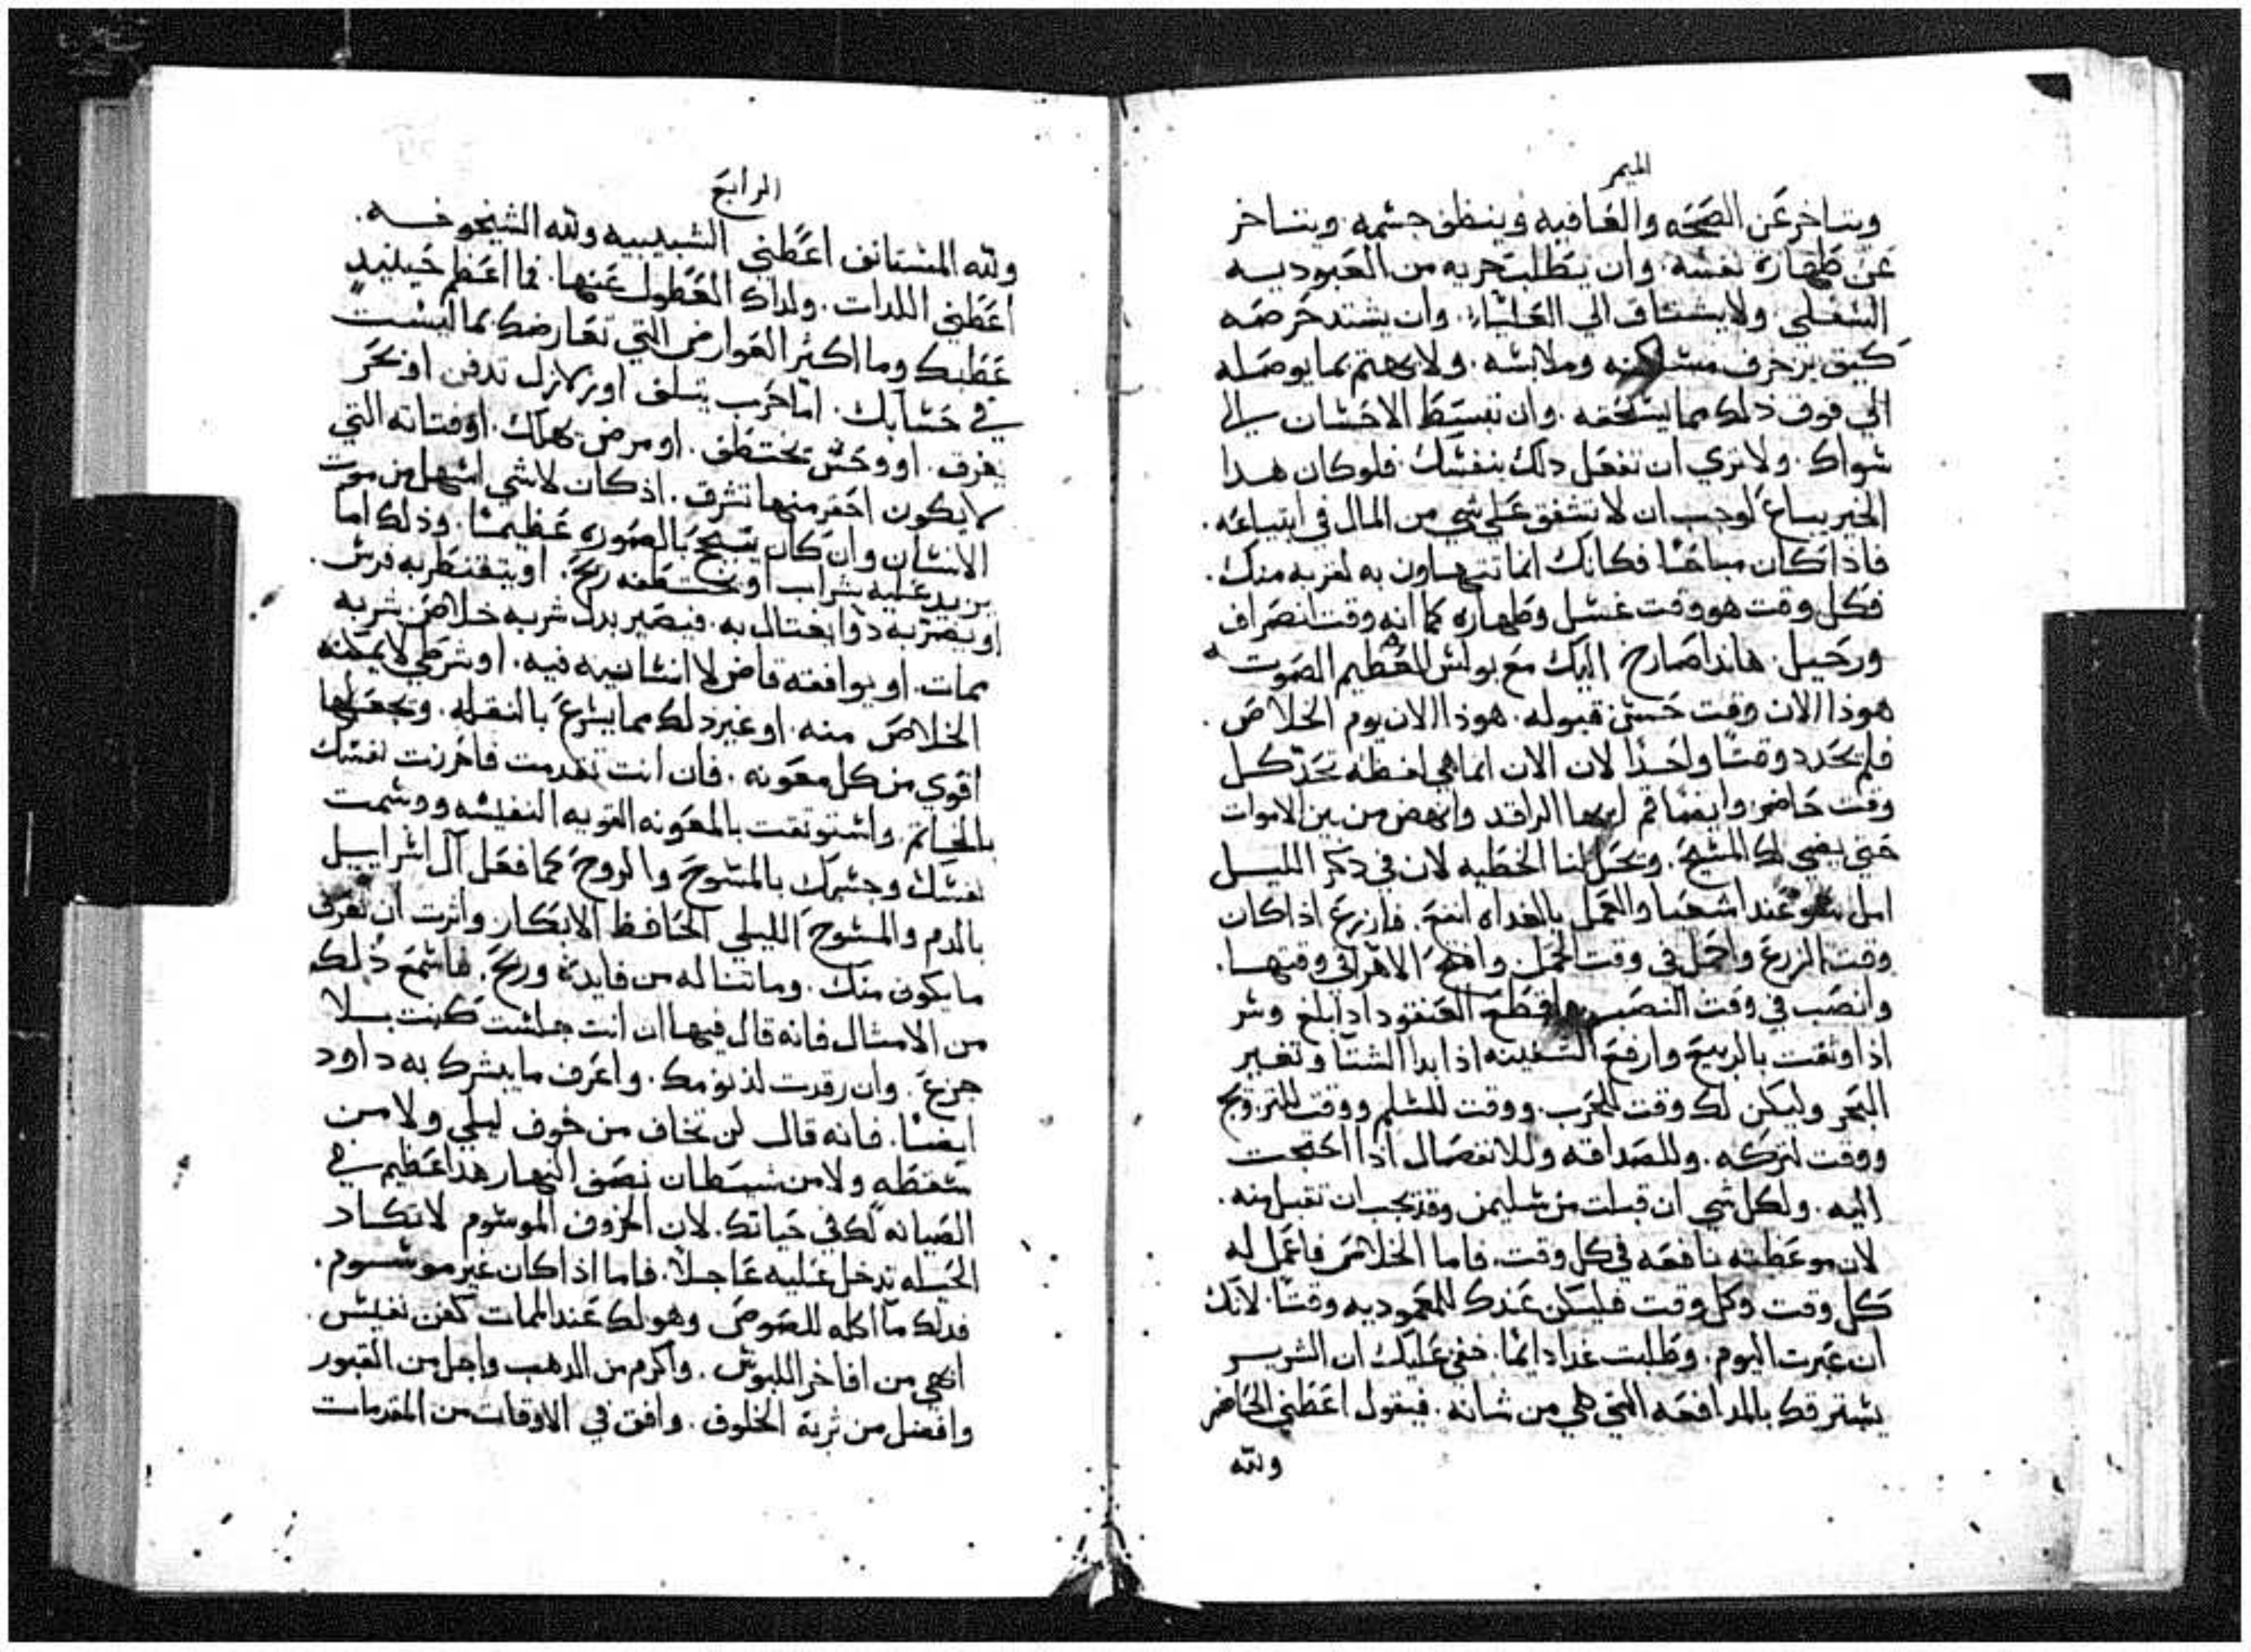 الميمر
ويتاخر عن الصحه والعافيه وينظف جسمه ويتاخر
عن طهارة نفسه. وان يتطلب حريه من العبوديه
السفلي ولا يشتاق الي العلياء. وان يشتد حرصه
كيف يزخرف مسكنه وملابسه. ولا يهتم بما يوصله
الي فوق ذلك مما يستحقه. وان تبسط الاحسان الي
سواك. ولا تري ان تفعل دلك بنفسك. فلو كان هدا
الخير يباع لوجب ان لا تشفق علي شي من المال في ابتياعه.
فاذا كان مباحا فكانك انما تتهاون به لقربه منك.
فكل وقت هو وقت غسل وطهاره كما انه وقت انصراف
ورحيل. هاندا صارخ اليك مع بولس العظيم الصوت
هوذا الان وقت حسن قبوله. هوذا الان يوم الخلاص.
فلم يحدد وقتا واحدا لان الان انما هي لفظه تحد كل
وقت حاضر وايضا قم ايها الراقد وانهض من بين الاموات
حتي يضي لك المسيح. ويحل لنا الخطيه لان في ذكر الليل
امل عند اشعيا والعمل بالغداه انفع. فازرع اذا كان
وقت الزرع واحمل في وقت الحمل. وافتح الاهرا في وقتها.
وانصب في وقت النصب واقطع العنقود ادا بلغ وسر
اذا وثقت بالربيع وارفع السفينه اذا بدا الشتا وتغير
البحر وليكن لك وقت للحرب. ووقت للسلم ووقت للتزويج
ووقت لتركه. وللصداقه وللانفصال اذا احتجت
اليه. ولكل شي ان قبلت من سليمن وقد يجب ان تقبل منه.
لان موعظته نافعه في كل وقت. فاما الخلاص فاعمل له
كل وقت وكل وقت فليكن عندك للمعموديه وقتا. لانك
ان عبرت اليوم. وطلبت غدا دائما. خفي عليك ان الشرير
يسترقك بالمدافعه التي هي من شانه. فيقول اعطني الحاضر
ولله
الرابع
ولله المستانف اعطني الشبيبيه ولله الشيخوخه.
اعطني اللدات. ولداك العطول عنها. فما اعظم حينيد
عطبك وما اكثر العوارض التي تعارضك بما ليست
في حسابك. اما حرب يتلف او زلازل تدفن او بحر
يغرق. او وحش يختطف. او مرض يهلك. او فتاته التي
لا يكون احقر منها تشرق. اذ كان لا شي اسهل من موت
الانسان وان كان يتبجح بالصوره عظيما. وذلك اما
يزيد عليه شراب او تختطفه ريح. او يتقنطر به فرس.
او يضر به دوا يغتال به. فيصير بدل شربه خلاص شربه
ممات. او يوافقه قاض لا انسانيه فيه. او شرطي لا يمكنه
الخلاص منه. او غير ذلك مما يسرع بالنقله. ويجعلها
اقوي من كل معونه. فان انت تقدمت فاحرزت نفسك
بالخاتم. واستوثقت بالمعونه القويه النفيسه ووسمت
نفسك وجسمك بالمسوح والروح كما فعل آل اسراييل
بالدم والمسوح الليلي الحافظ الابكار واثرت ان تعرف
ما يكون منك. وما تناله من فايدة وربح. فاسمع ذلك
من الامثال فانه قال فيها ان انت جلست كنت بلا
جزع. وان رقدت لذ نومك. واعرف ما يبشرك به داود
ايضا. فانه قال لن تخاف من خوف ليلي ولا من
سقطه ولا من شيطان نصف النهار هدا عظيم في
الصيانه لك في حياتك. لان الخروف الموسوم لا تكاد
الحيله تدخل عليه عاجلا. فاما اذا كان غير موسوم.
فدلك مآ اكله للصوص وهو لك عند الممات كفن نفيس.
ابهي من افاخر اللبوس. واكرم من الدهب واجل من القبور
وافضل من تربة الخلوف. وافق في الاوقات من المقدمات